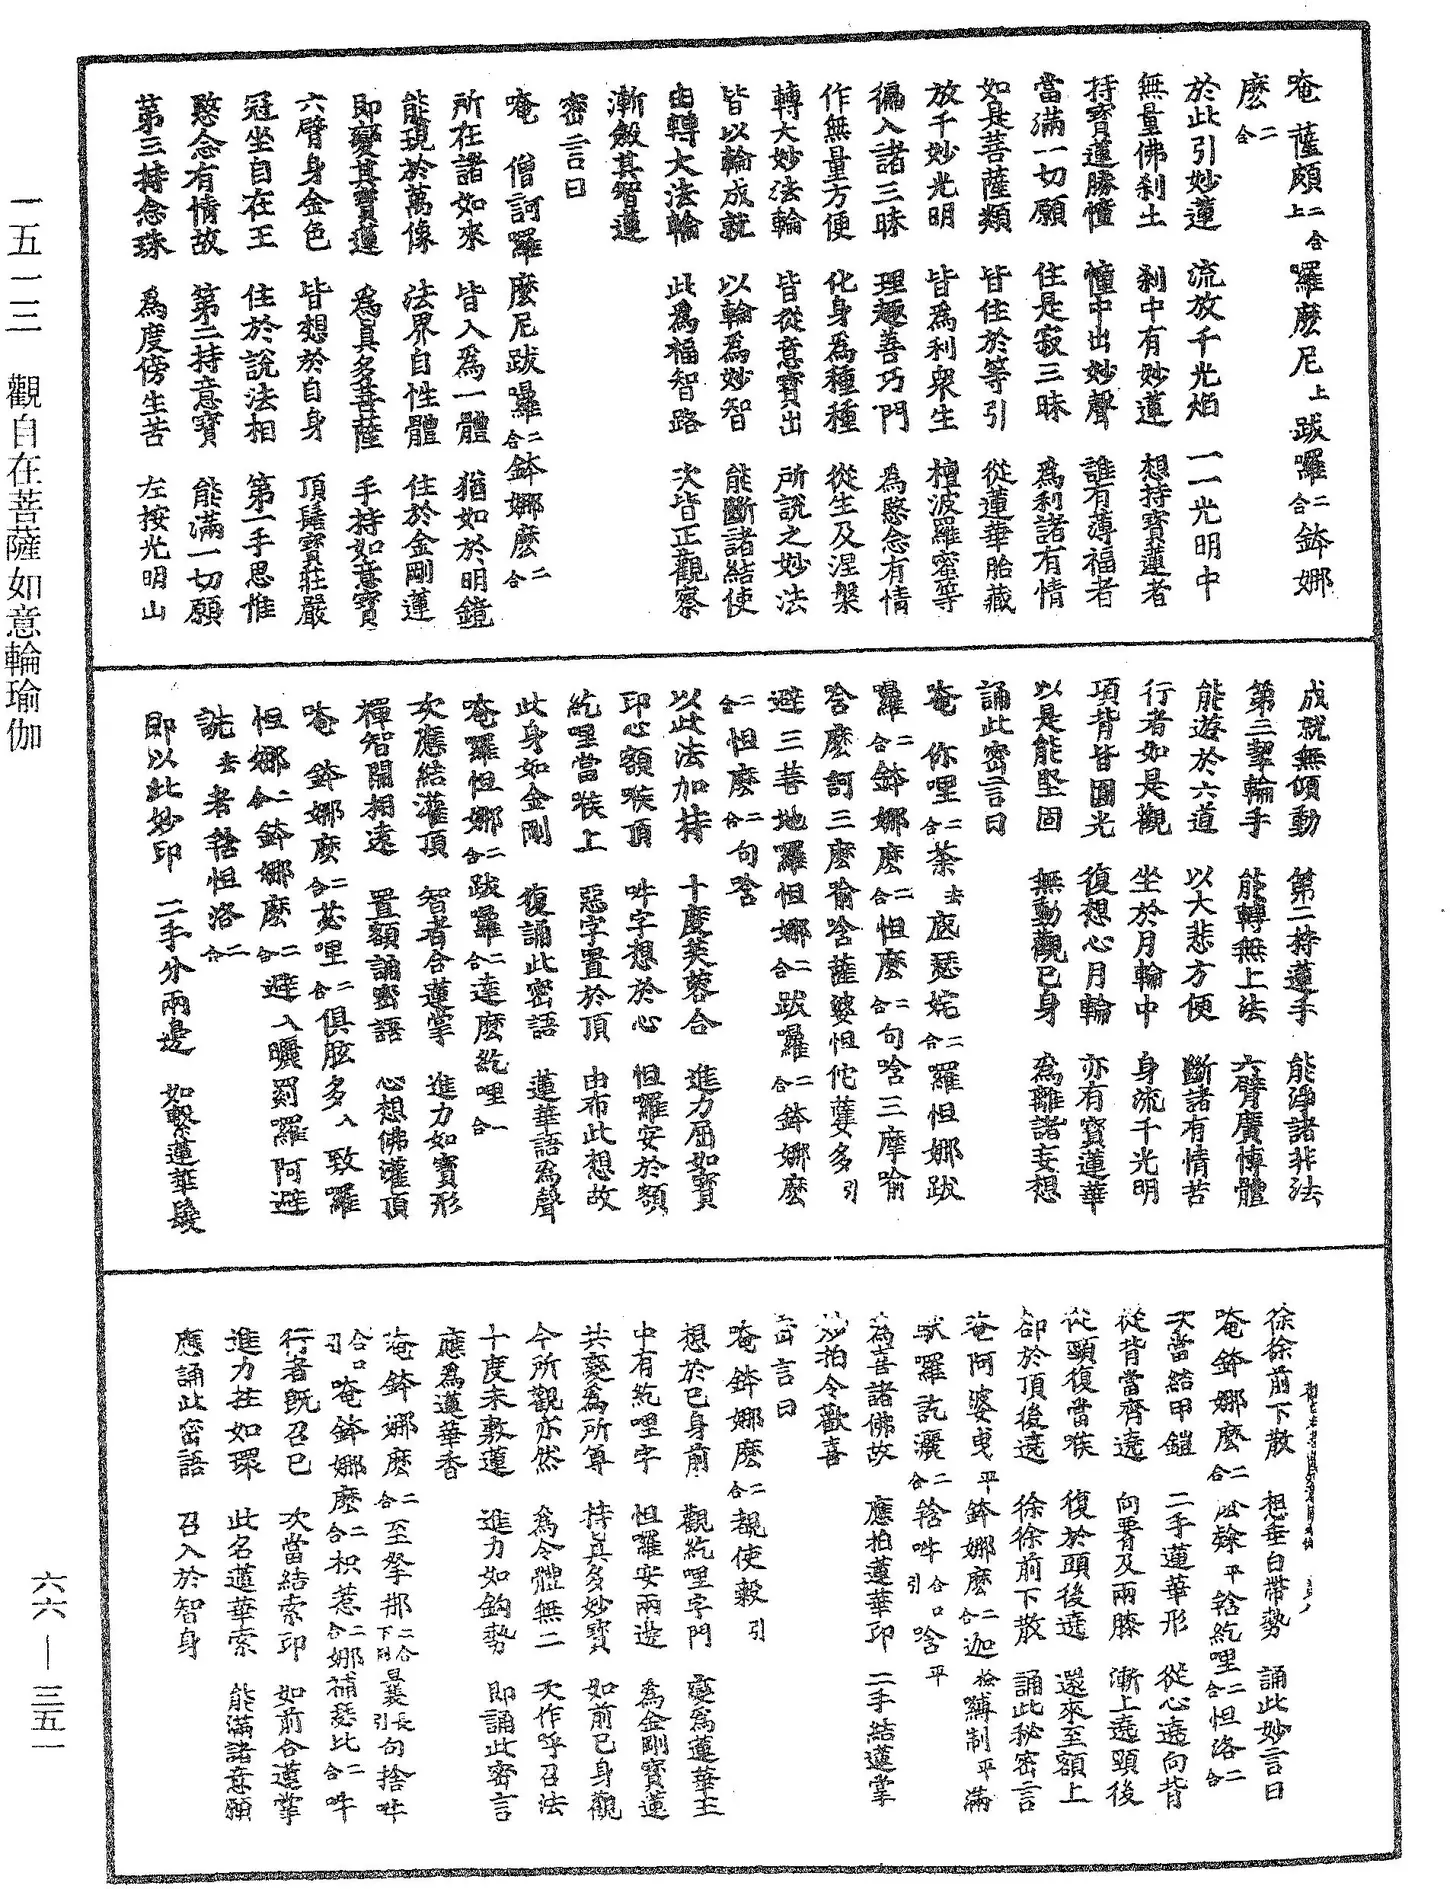 唵 薩頗二合上囉麼尼上跋囉二合鉢娜
麼二合
於此引妙蓮 流放千光焰 一一光明中
無量佛剎土 剎中有妙蓮 想持寶蓮者
持寶蓮勝幢 幢中出妙聲 誰有薄福者
當滿一切願 住是寂三昧 為利諸有情
如是菩薩類 皆住於等引 從蓮華胎藏
放千妙光明 皆為利眾生 檀波羅蜜等
徧入諸三昧 理趣善巧門 為愍念有情
作無量方便 化身為種種 從生及涅槃
轉大妙法輪 皆從意寶出 所說之妙法
皆以輪成就 以輪為妙智 能斷諸結使
由轉大法輪 此為福智路 次皆正觀察
漸斂其智蓮
密言曰
唵 僧訶囉麼尼跋囉二合鉢娜麼二合
所在諸如來 皆入為一體 猶如於明鏡
能現於萬像 法界自性體 住於金剛蓮
即變其寶蓮 為真多菩薩 手持如意寶
六臂身金色 皆想於自身 頂髻寶莊嚴
冠坐自在王 住於說法相 第一手思惟
愍念有情故 第二持意寶 能滿一切願
第三持念珠 為度傍生苦 左按光明山
成就無傾動 第二持蓮手 能淨諸非法
第三挈輪手 能轉無上法 六臂廣博體
能遊於六道 以大悲方便 斷諸有情苦
行者如是觀 坐於月輪中 身流千光明
項背皆圓光 復想心月輪 亦有寶蓮華
以是能堅固 無動觀已身 為離諸妄想
誦此密言曰
唵 你哩二合荼去底瑟姹二合羅怛娜跋
羅二合鉢娜麼二合怛麼二合句唅三摩喻
唅麼訶三麼喻唅薩婆怛佗蘖多引
避三菩地羅怛娜二合跋羅二合鉢娜麼
二合怛麼二合句唅
以此法加持 十度芙蓉合 進力屈如寶
印心額喉頂 吽字想於心 怛羅安於額
紇哩當喉上 惡字置於頂 由布此想故
此身如金剛 復誦此密語 蓮華語為聲
唵羅怛娜二合跋羅二合達麼紇哩一合
次應結灌頂 智者合蓮掌 進力如寶形
禪智開相遶 置額誦密語 心想佛灌頂
唵 鉢娜麼二合苾哩二合俱胝多入致羅
怛娜二合鉢娜麼二合避入曬罰羅阿避
詵去者辖怛洛二合
即以此妙印 二手分兩邊 如繫蓮華鬘
徐徐前下散 想垂白帶勢 誦此妙言曰
唵鉢娜麼二合 平辖紇哩二合怛洛二合
次當結甲鎧 二手蓮華形 從心遶向背
從背當齊遶 向胷及兩膝 漸上遶頸後
從頸復當喉 復於頭後遶 還來至額上
卻於頂後遶 徐徐前下散 誦此秘密言
唵阿婆曳平鉢娜麼二合迦 縛制平滿
馱羅訖灑二合辖吽合口引唅平
為喜諸佛故 應拍蓮華印 二手結蓮掌
妙拍令歡喜
密言曰
唵鉢娜麼二合覩使縠引
想於已身前 觀紇哩字門 變為蓮華王
中有紇哩字 怛羅安兩邊 為金剛寶蓮
共變為所尊 持真多妙寶 如前已身觀
今所觀亦然 為令體無二 次作呼召法
十度未敷蓮 進力如鈎勢 即誦此密言
應為蓮華香
唵鉢娜麼二合至孥 句捨吽
合口引唵鉢娜麼二合枳惹二合娜補瑟比二合吽
行者既召已 次當結索印 如前合蓮掌
進力拄如環 此名蓮華索 能滿諸意願
應誦此密語 召入於智身
一五一三 觀自在菩薩如意輪瑜伽
六六—三五一